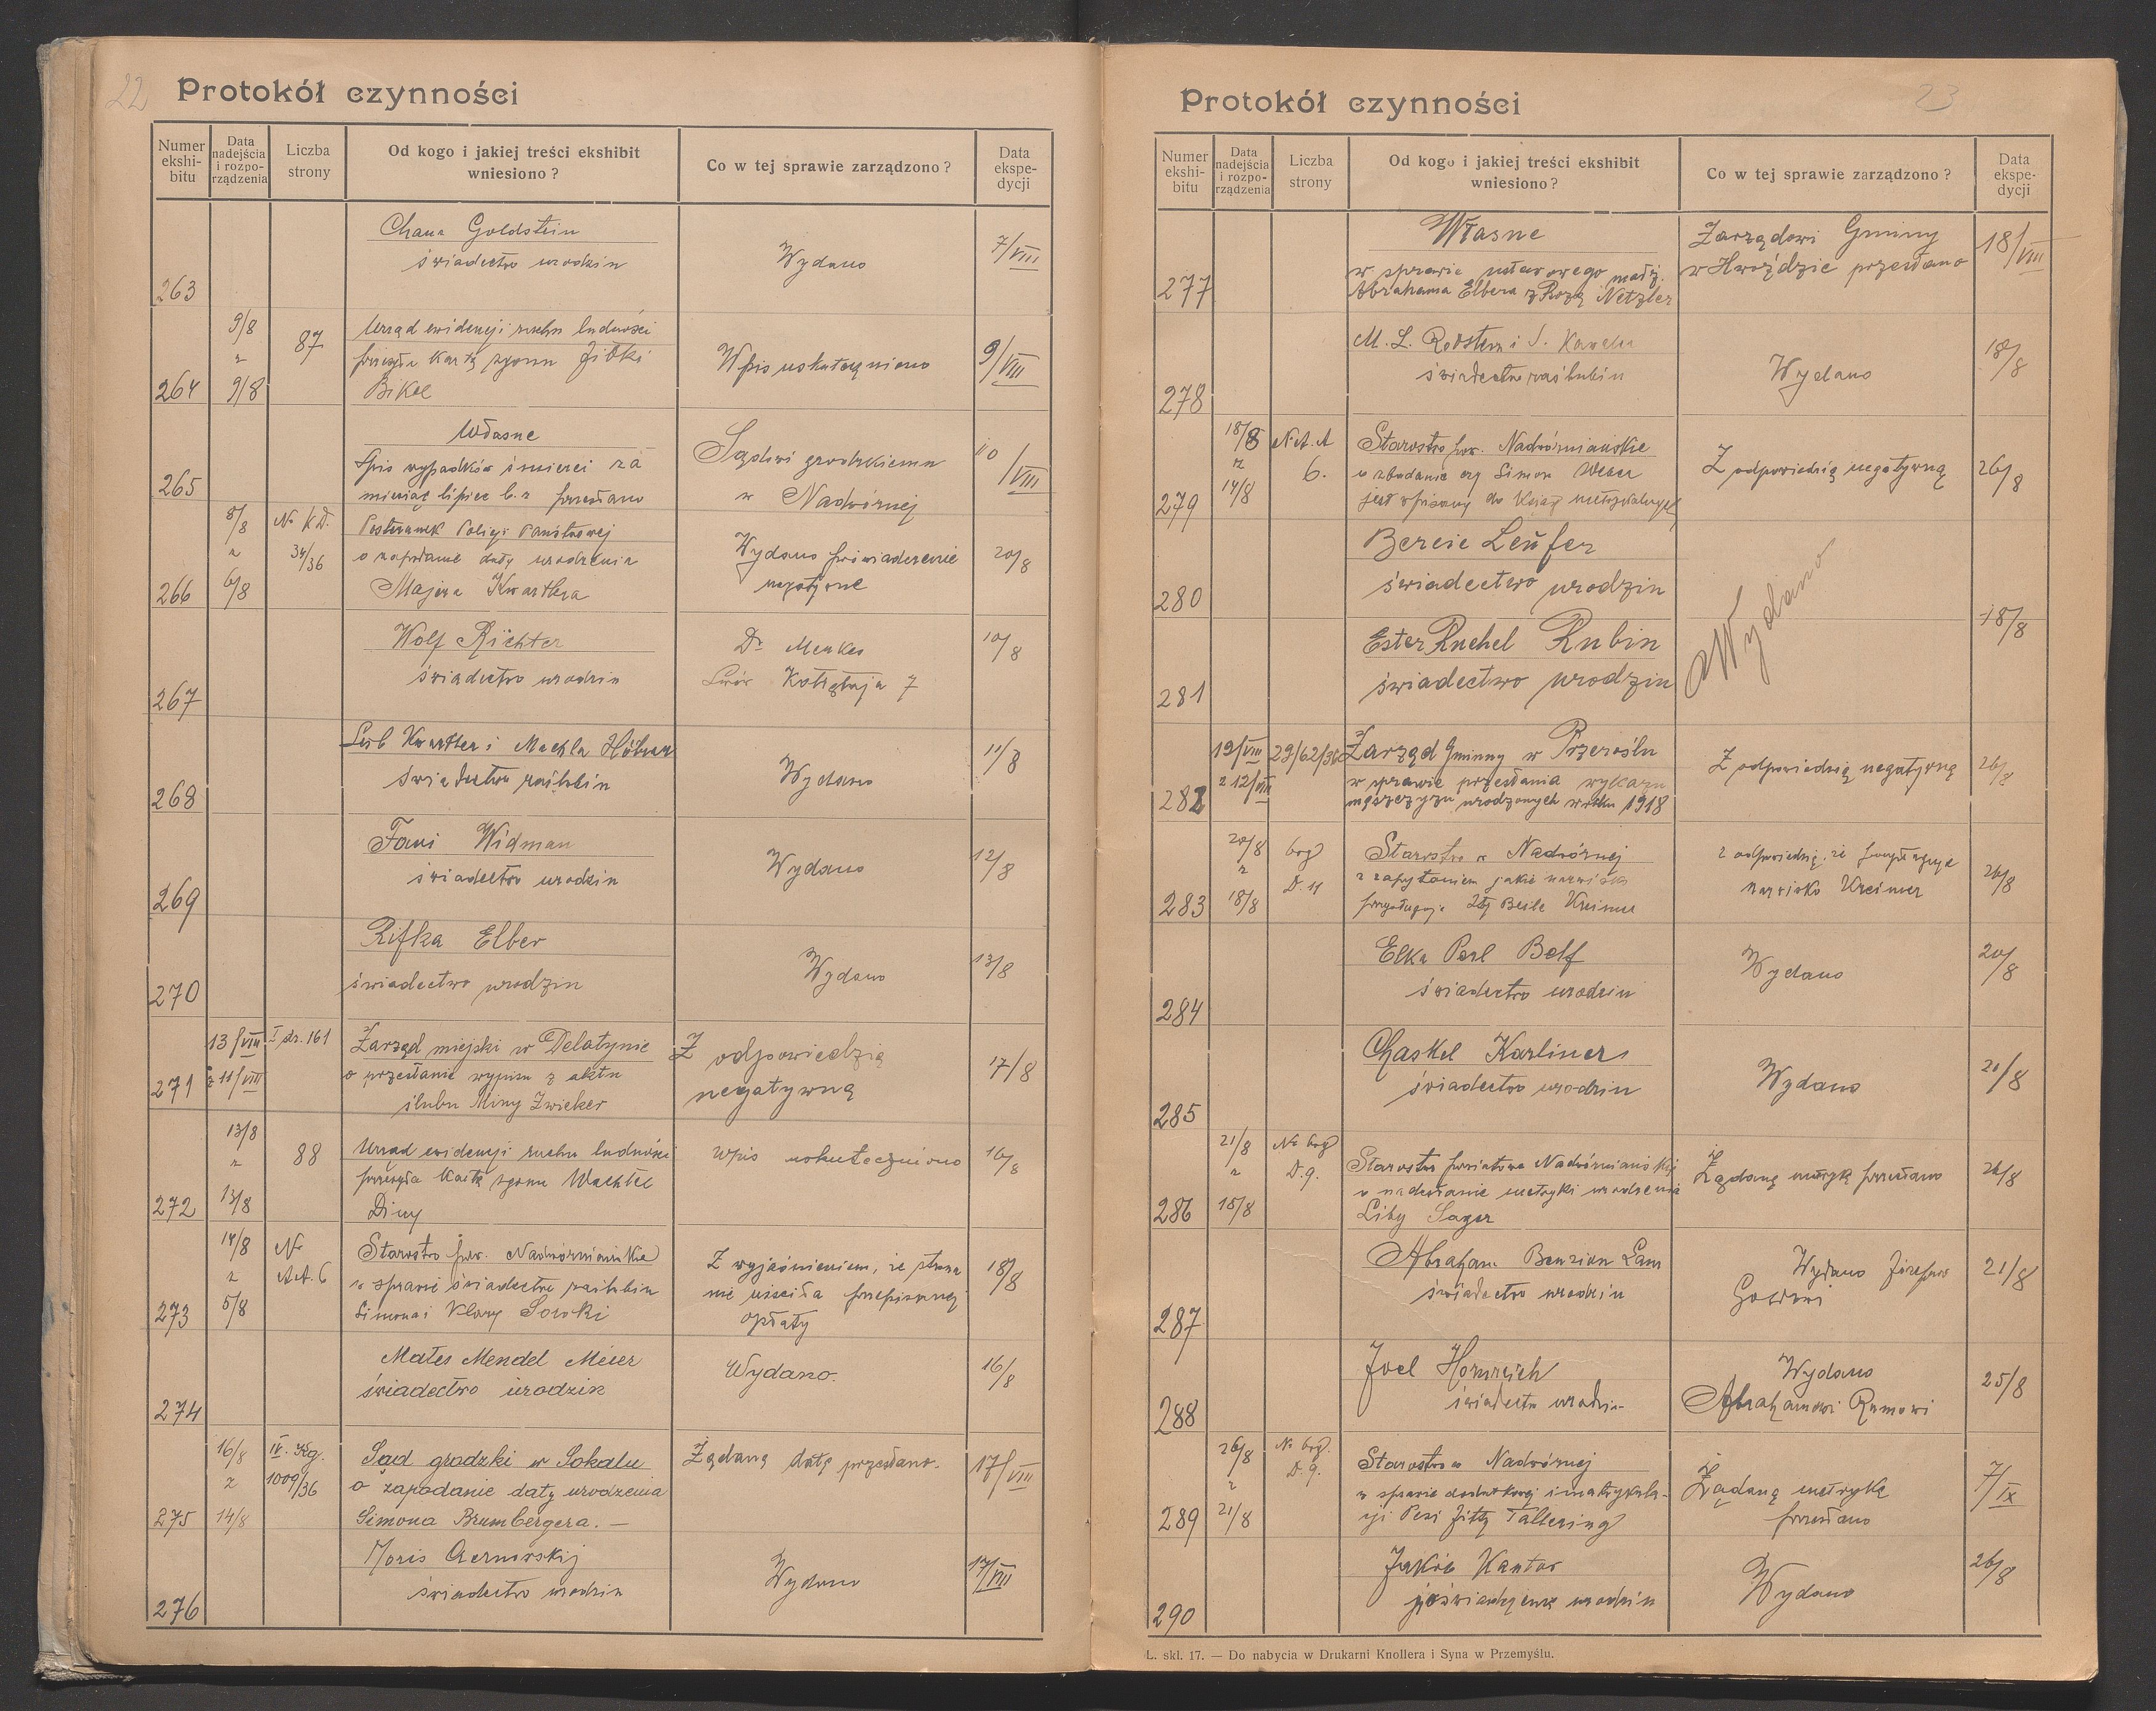 22
Protokół czynności
Numer ekshi-bitu
Data nadejścia i rozpo-rządzenia
Liczba strony
Od kogo i jakiej treści ekshibit wniesiono?
Co w tej sprawie zarządzono?
Data ekspe-dycji
Chana Goldstein
świadectwo urodzin
Wydano
7/VIII
263
9/8
z
9/8
87
Urząd ewidencji ruchu ludności
przesyła kartę zgonu Zitki
Bikel
Wpis uskuteczniono
9/VIII
264
Własne
Spis wypadków śmierci za
miesiąc lipiec b.r. przesłano
Sądowi grodzkiemu
w Nadwórnej
10/VIII
265
8/8
z
6/8
No KD.
34/36
Posterunek Policji Państwowej
o zapodanie daty urodzenia
Majera Kwartlera
Wydano poświadczenie
negatywne
20/8
266
Wolf Richter
świadectwo urodzin
Dr Menkes
Lwów Kołłątaja 7
10/8
267
Leib Kwartler i Machla
świadectwo zaślubin
Wydano
11/8
268
Fani Widman
świadectwo urodzin
Wydano
12/8
269
Rifka Elber
świadectwo urodzin
Wydano
13/8
270
13/VIII
z 11/VIII
I dz. 161
Zarząd miejski w Delatynie
o przesłanie wypisu z aktu
ślubu Miny Zwicker
Z odpowiedzią
negatywną
17/8
271
13/8
z
13/8
88
Urząd ewidencji ruchu ludności
przesyła kartę zgonu Wachtel
Diny
Wpis uskuteczniono
16/8
272
14/8
z
5/8
No
A.A. 6
Starostwo pow. Nadwórniańskie
w sprawie świadectwa zaślubin
Simona i Klary Sowki
Z wyjaśnieniem, że strona
nie uiściła przepisanej
opłaty
18/8
273
Mates Mendel Meier
świadectwo urodzin
Wydano.
16/8
274
16/8
z
14/8
IV. Kg.
1009/36
Sąd grodzki w Sokalu
o zapodanie daty urodzenia
Simona Brumbergera. —
Żądaną datę przesłano.
17/VIII
275
Moris Czernowskij
świadectwo urodzin
Wydano
17/VIII
276
23
Protokół czynności
Numer ekshi-bitu
Data nadejścia i rozpo-rządzenia
Liczba strony
Od kogo i jakiej treści ekshibit wniesiono?
Co w tej sprawie zarządzono?
Data ekspe-dycji
Własne
w sprawie ustawowego małż.
Abrahama Elbera z Rozą Netzler
Zarządowi Gminy
w Hwoździe przesłano
18/VIII
277
M. L. Rotstein i S.
świadectwo zaślubin
Wydano
18/8
278
18/8
z
14/8
No A.A
6.
Starostwo pow. Nadwórniańskie
o zbadanie czy Simon Weser
jest wpisany do ksiąg metrykalnych
Z odpowiedzią negatywną
26/8
279
Bereie Leufer
świadectwo urodzin
280
Ester Ruchel Rubin
świadectwo urodzin
Wydano
18/8
281
19/VIII
z 12/VIII
29/62/36
Zarząd Gminny w Przerośla
w sprawie przesłania wykazu
mężczyzn urodzonych w roku 1918
Z odpowiedzią negatywną
26/8
282
20/8
z
18/8
brg
D. 11
Starostwo w Nadwórnej
z zapytaniem jakie nazwisko
przysługuje Beile Kreimer
z odpowiedzią, że przysługuje
nazwisko Kreimer
26/8
283
Elka Perl Belf
świadectwo urodzin
Wydano
20/8
284
Chaskel Karliner
świadectwo urodzin
Wydano
21/8
285
21/8
z
15/8
No brg
D. 9.
Starostwo powiatowe Nadwórniańskie
o nadesłanie metryki urodzenia
Liby Sager
Żądaną metrykę przesłano
26/8
286
Abraham Benzion Lam
świadectwo urodzin
Wydano Józefowi
21/8
287
Joel Hornreich
świadectwo urodzin
Wydano
Abrahamowi Rumowi
25/8
288
26/8
z
21/8
No brg.
D. 9.
Starostwo w Nadwórnej
w sprawie dodatkowej immatrykula-
cji Pesi Zitty Taltering
Żądaną metrykę
przesłano
7/IX
289
Jakób Kantor
poświadczenie urodzin
Wydano
26/8
290
L. skł. 17. — Do nabycia w Drukarni Knollera i Syna w Przemyślu.